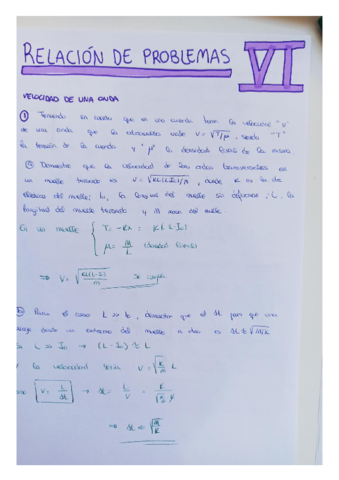 RELACIÓN DE PROBLEMAS VI
VELOCIDAD DE UNA ONDA
① Teniendo en cuenta que en una cuerda tensa la velocidad "v"
de una onda que la atraviesa vale V = √T/μ, siendo "T"
la tensión de la cuerda y "μ" la densidad lineal de la misma
ⓐ Demuestre que la velocidad de las ondas transversales en
un muelle tensado es V = √KL(L-L₀)/M, donde K es la cte
elástica del muelle; L₀ la longitud del muelle sin deformar; L la
longitud del muelle tensado y M masa del muelle.
En un muelle { T = -Kx = K(L-L₀)
μ = M/L (densidad lineal)
⇒ V = √KL(L-L₀)/m Se cumple
Para el caso L >> L₀, demostrar que el Δt para que una
desde un extremo del muelle a otro es Δt ≈ √M/K
L >> L₀ → (L-L₀) ≈ L
la velocidad sería V = √K/M L
V = L/Δt → Δt = L/V =
⇒ Δt = √M/K